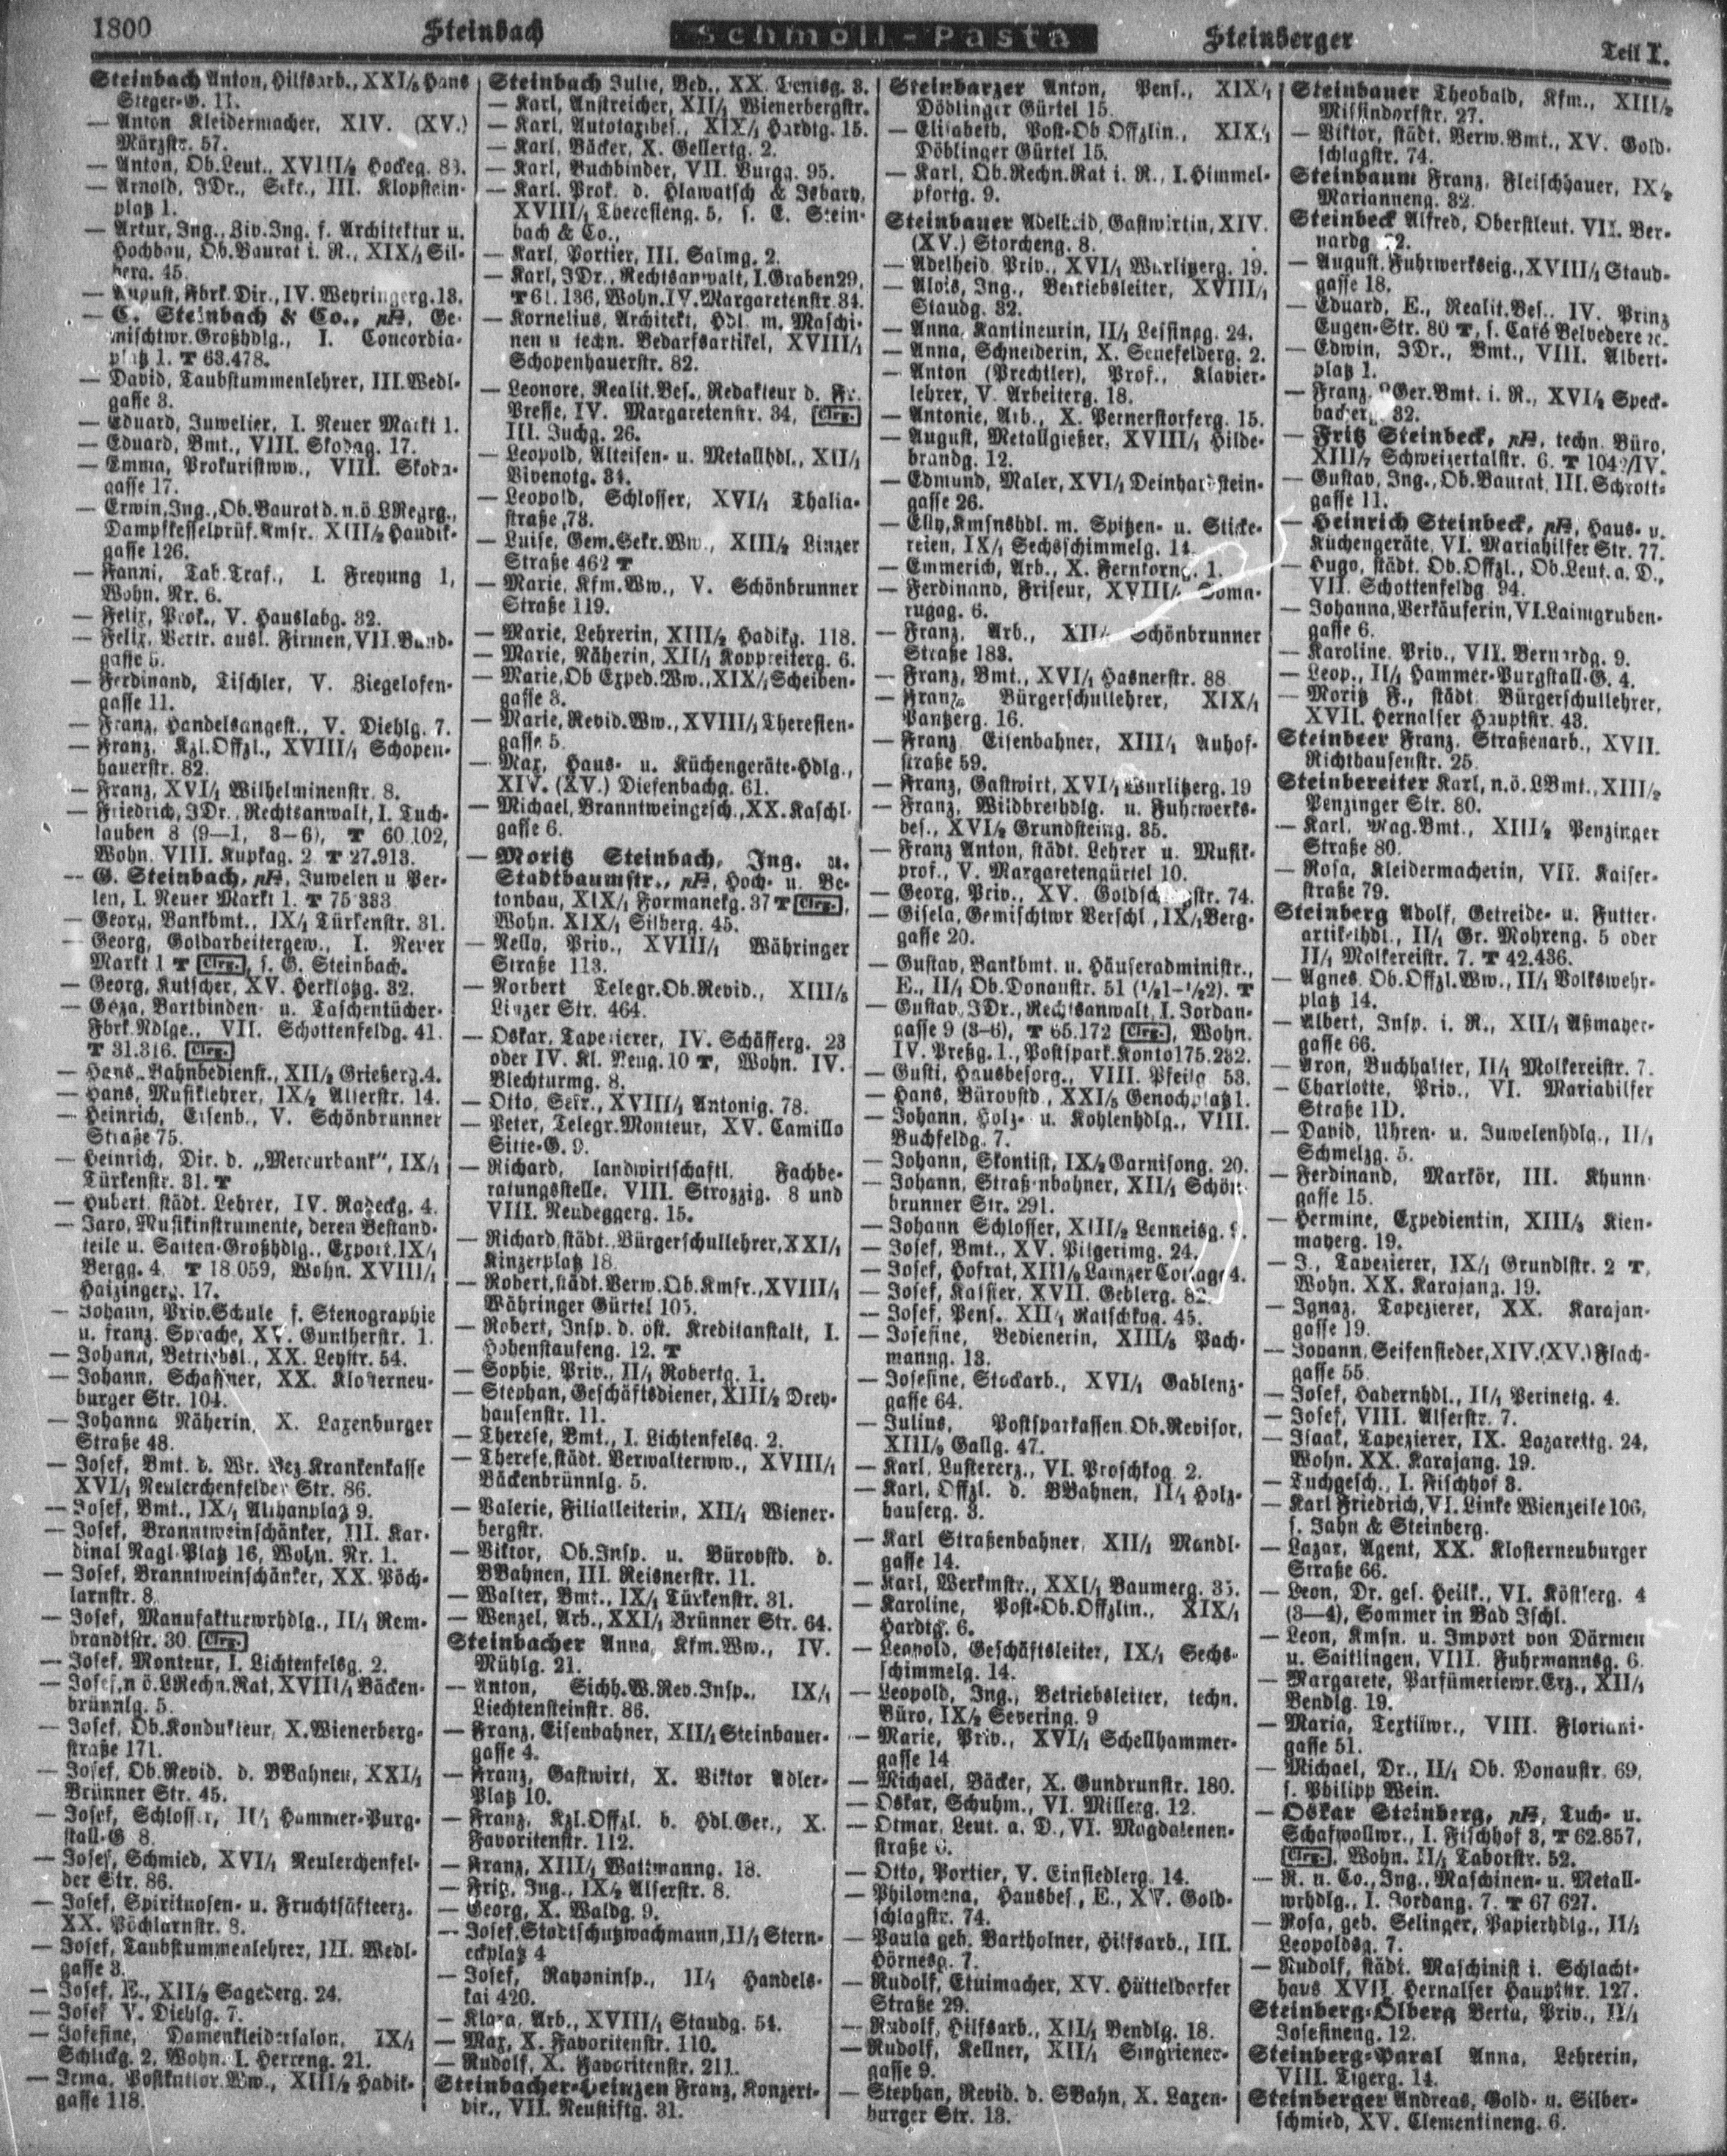 1800 Steinbach Schmoll-Pasta Steinberger Teil I.
Steinbach Anton, Hilfsarb., XXI/5 Hans
Steger-G. 11.
— Anton Kleidermacher, XIV. (XV.)
Märzstr. 57.
— Anton, Ob.Leut., XVIII/2 Hockeg. 83.
— Arnold, JDr., Sekr., III. Klopstein-
platz 1.
— Artur, Ing., Ziv.Ing. f. Architektur u.
Hochbau, Ob.Baurat i. R., XIX/1 Sil-
berg. 45.
— August, Fbrk.Dir., IV. Weyringerg. 13.
— C. Steinbach & Co., pH, Ge-
mischtwr.Großhdlg., I. Concordia-
platz 1. T 63.478.
— David, Taubstummenlehrer, III. Wedl-
gasse 3.
— Eduard, Juwelier, I. Neuer Markt 1.
— Eduard, Bmt., VIII. Skodag. 17.
— Emma, Prokuristww., VIII. Skoda-
gasse 17.
— Erwin, Ing., Ob.Baurat d. n.ö LRegrg.,
Dampfkesselprüf.Kmsr. XIII/2 Haudik-
gasse 126.
— Fanni, Tab.Traf., I. Freyung 1,
Wohn. Nr. 6.
— Felix, Prok., V. Hauslabg. 32.
— Felix, Vertr. ausl. Firmen, VII. Band-
gasse 5.
— Ferdinand, Tischler, V. Ziegelofen-
gasse 11.
— Franz, Handelsangest., V. Diehlg. 7.
— Franz, Kzl.Offzl., XVIII/1 Schopen-
hauerstr. 82.
— Franz, XVI/1 Wilhelminenstr. 8.
— Friedrich, JDr., Rechtsanwalt, I. Tuch-
lauben 8 (9—1, 3—6), T 60.102,
Wohn. VIII. Kupkag. 2 T 27.913.
— G. Steinbach, pH, Juwelen u Per-
len, I. Neuer Markt 1. T 75 383
— Georg, Bankbmt., IX/1 Türkenstr. 31.
— Georg, Goldarbeitergew., I. Neuer
Markt 1 T Clrg., s. G. Steinbach.
— Georg, Kutscher, XV. Herklotzg. 32.
— Géza, Bartbinden- u. Taschentücher-
Fbrk.Ndlge., VII. Schottenfeldg. 41.
T 31.316. Clrg.
— Hans, Bahnbedienst., XII/2 Grießerg. 4.
— Hans, Musiklehrer, IX/2 Alserstr. 14.
— Heinrich, Eisenb., V. Schönbrunner
Straße 75.
— Heinrich, Dir. d. „Mercurbank“, IX/1
Türkenstr. 31. T
— Hubert, städt. Lehrer, IV. Radeckg. 4.
— Jaro, Musikinstrumente, deren Bestand-
teile u. Saiten-Großhdlg., Export, IX/1
Bergg. 4, T 18.059, Wohn. XVIII/1
Haizingerg. 17.
— Johann, Priv.Schule f. Stenographie
u. franz. Sprache, XV. Guntherstr. 1.
— Johann, Betriebsl., XX. Leystr. 54.
— Johann, Schaffner, XX. Klosterneu-
burger Str. 104.
— Johanna Näherin, X. Laxenburger
Straße 48.
— Josef, Bmt. d. Wr. Bez.Krankenkasse
XVI/1 Neulerchenfelder Str. 86.
— Josef, Bmt., IX/1 Althanplatz 9.
— Josef, Branntweinschänker, III. Kar-
dinal Nagl-Platz 16, Wohn. Nr. 1.
— Josef, Branntweinschänker, XX. Pöch-
larnstr. 8.
— Josef, Manufakturwrhdlg., II/1 Rem-
brandtstr. 30. Clrg.
— Josef, Monteur, I. Lichtenfelsg. 2.
— Josef, n ö.LRechn.Rat, XVIII/1 Bäcken-
brünnlg. 5.
— Josef, Ob.Kondukteur, X. Wienerberg-
straße 171.
— Josef, Ob.Revid. d. BBahnen, XXI/1
Brünner Str. 45.
— Josef, Schlosser, II/1 Hammer-Purg-
stall-G 8.
— Josef, Schmied, XVI/1 Neulerchenfel-
der Str. 86.
— Josef, Spirituosen- u. Fruchtsäfteerz.
XX. Pöchlarnstr. 8.
— Josef, Taubstummenlehrer, III. Wedl-
gasse 3.
— Josef, E., XII/2 Sagederg. 24.
— Josef V. Diehlg. 7.
— Josefine, Damenkleidersalon, IX/1
Schlickg. 2, Wohn. I. Herreng. 21.
— Irma, Postkntlor.Ww., XIII/2 Hadik-
gasse 118.
Steinbach Julie, Bed., XX. Denisg. 3.
— Karl, Anstreicher, XII/1 Wienerbergstr.
— Karl, Autotaxibes., XIX/1 Hardtg. 15.
— Karl, Bäcker, X. Gellertg. 2.
— Karl, Buchbinder, VII. Burgg. 95.
— Karl, Prok. d. Hlawatsch & Isbary,
XVIII/1 Theresieng. 5, s. C. Stein-
bach & Co.,
— Karl, Portier, III. Salmg. 2.
— Karl, JDr., Rechtsanwalt, I. Graben 29,
T 61.136, Wohn. IV. Margaretenstr. 34.
— Kornelius, Architekt, Hdl. m. Maschi-
nen u techn. Bedarfsartikel, XVIII/1
Schopenhauerstr. 82.
— Leonore, Realit.Bes., Redakteur d. Fr.
Presse, IV. Margaretenstr. 34, Clrg.
III. Juchg. 26.
— Leopold, Alteisen- u. Metallhdl., XII/1
Vivenotg. 34.
— Leopold, Schlosser, XVI/1 Thalia-
straße 73.
— Luise, Gem.Sekr.Ww., XIII/2 Linzer
Straße 462 T
— Marie, Kfm.Ww., V. Schönbrunner
Straße 119.
— Marie, Lehrerin, XIII/2 Hadikg. 118.
— Marie, Näherin, XII/1 Koppreiterg. 6.
— Marie, Ob Exped.Ww., XIX/1 Scheiben-
gasse 3.
— Marie, Revid.Ww., XVIII/1 Theresien-
gasse 5.
— Max, Haus- u. Küchengeräte-Hdlg.,
XIV. (XV.) Diefenbachg. 61.
— Michael, Branntweingesch., XX. Kaschl-
gasse 6.
— Moritz Steinbach, Ing. u.
Stadtbaumstr., pH, Hoch- u. Be-
tonbau, XIX/1 Formanekg. 37 T Clrg.,
Wohn. XIX/1 Silberg. 45.
— Nelly, Priv., XVIII/1 Währinger
Straße 113.
— Norbert Telegr.Ob.Revid., XIII/5
Linzer Str. 464.
— Oskar, Tapezierer, IV. Schäfferg. 23
oder IV. Kl. Neug. 10 T, Wohn. IV.
Blechturmg. 8.
— Otto, Sekr., XVIII/1 Antonig. 78.
— Peter, Telegr.Monteur, XV. Camillo
Sitte-G. 9.
— Richard, landwirtschaftl. Fachbe-
ratungsstelle, VIII. Strozzig. 8 und
VIII. Neudeggerg. 15.
— Richard, städt. Bürgerschullehrer, XXI/1
Kinzerplatz 18
— Robert, städt. Verw.Ob.Kmsr., XVIII/1
Währinger Gürtel 105.
— Robert, Insp. d. öst. Kreditanstalt, I.
Hohenstaufeng. 12. T
— Sophie, Priv., II/1 Robertg. 1.
— Stephan, Geschäftsdiener, XIII/2 Drey-
hausenstr. 11.
— Therese, Bmt., I. Lichtenfelsg. 2.
— Therese, städt. Verwalterww., XVIII/1
Bäckenbrünnlg. 5.
— Valerie, Filialleiterin, XII/1 Wiener-
bergstr.
— Viktor, Ob.Insp. u. Bürovstd. d.
BBahnen, III. Reisnerstr. 11.
— Walter, Bmt., IX/1 Türkenstr. 31.
— Wenzel, Arb., XXI/1 Brünner Str. 64.
Steinbacher Anna, Kfm.Ww., IV.
Mühlg. 21.
— Anton, Sichh.W.Rev.Insp., IX/1
Liechtensteinstr. 86.
— Franz, Eisenbahner, XII/1 Steinbauer-
gasse 4.
— Franz, Gastwirt, X. Viktor Adler-
Platz 10.
— Franz, Kzl.Offzl. b. Hdl.Ger., X.
Favoritenstr. 112.
— Franz, XIII/1 Wattmanng. 18.
— Fritz, Ing., IX/2 Alserstr. 8.
— Georg, X. Waldg. 9.
— Josef, Stadtschutzwachmann, II/1 Stern-
eckplatz 4
— Josef, Rayoninsp., II/1 Handels-
kai 420.
— Klara, Arb., XVIII/1 Staudg. 54.
— Max, X. Favoritenstr. 110.
— Rudolf, X. Favoritenstr. 211.
Steinbacher-Heinzen Franz, Konzert-
dir., VII. Neustiftg. 31.
Steinbarzer Anton, Pens., XIX/1
Döblinger Gürtel 15.
— Elisabeth, Post-Ob.Offzlin., XIX/1
Döblinger Gürtel 15.
— Karl, Ob.Rechn.Rat i. R., I. Himmel-
pfortg. 9.
Steinbauer Adelheid, Gastwirtin, XIV.
(XV.) Storcheng. 8.
— Adelheid Priv., XVI/1 Wurlitzerg. 19.
— Alois, Ing., Betriebsleiter, XVIII/1
Staudg. 32.
— Anna, Kantineurin, II/1 Lessingg. 24.
— Anna, Schneiderin, X. Senefelderg. 2.
— Anton (Prechtler), Prof., Klavier-
lehrer, V. Arbeiterg. 18.
— Antonie, Arb., X. Pernerstorferg. 15.
— August, Metallgießer, XVIII/1 Hilde-
brandg. 12.
— Edmund, Maler, XVI/1 Deinhardstein-
gasse 26.
— Elly, Kmsnshdl. m. Spitzen- u. Sticke-
reien, IX/1 Sechsschimmelg. 14.
— Emmerich, Arb., X. Fernkorng. 1.
— Ferdinand, Friseur, XVIII/1 Soma-
rugag. 6.
— Franz, Arb., XII/ Schönbrunner
Straße 183.
— Franz, Bmt., XVI/1 Hasnerstr. 88
— Franz Bürgerschullehrer, XIX/1
Pantzerg. 16.
— Franz Eisenbahner, XIII/1 Auhof-
straße 59.
— Franz, Gastwirt, XVI/1 Wurlitzerg. 19
— Franz, Wildbrethdlg. u. Fuhrwerks-
bes., XVI/2 Grundsteing. 35.
— Franz Anton, städt. Lehrer u. Musik-
prof., V. Margaretengürtel 10.
— Georg, Priv., XV. Goldschlagstr. 74.
— Gisela, Gemischtwr Verschl., IX/1 Berg-
gasse 20.
— Gustav, Bankbmt. u. Häuseradministr.,
E., II/1 Ob.Donaustr. 51 (½1–½2). T
— Gustav, JDr., Rechtsanwalt, I. Jordan-
gasse 9 (3–6), T 65.172 Clrg., Wohn.
IV. Preßg. 1., Postspark.Konto 175.232.
— Gusti, Hausbesorg., VIII. Pfeilg 53.
— Hans, Bürovstd., XXI/5 Genochplatz 1.
— Johann, Holz- u. Kohlenhdlg., VIII.
Buchfeldg. 7.
— Johann, Skontist, IX/2 Garnisong. 20.
— Johann, Straßenbahner, XII/1 Schön-
brunner Str. 291.
— Johann Schlosser, XIII/2 Lenneisg.
— Josef, Bmt., XV. Pilgerimg. 24.
— Josef, Hofrat, XIII/9 Lainzer Cottageg 4.
— Josef, Kassier, XVII. Geblerg. 82
— Josef, Pens., XII/1 Ratschkyg. 45.
— Josefine, Bedienerin, XIII/5 Pach-
manng. 13.
— Josefine, Stockarb., XVI/1 Gablenz-
gasse 64.
— Julius, Postsparkassen.Ob.Revisor,
XIII/9 Gallg. 47.
— Karl, Lustererz., VI. Proschkog. 2.
— Karl, Offzl. d. BBahnen, II/1 Holz-
hauserg. 3.
— Karl Straßenbahner, XII/1 Mandl-
gasse 14.
— Karl, Werkmstr., XXI/1 Baumerg. 35.
— Karoline, Post-Ob.Offzlin., XIX/1
Hardtg. 6.
— Leopold, Geschäftsleiter, IX/1 Sechs-
schimmelg. 14.
— Leopold, Ing., Betriebsleiter, techn.
Büro, IX/2 Severing. 9
— Marie, Priv., XVI/1 Schellhammer-
gasse 14
— Michael, Bäcker, X. Gundrunstr. 180.
— Oskar, Schuhm., VI. Millerg. 12.
— Otmar, Leut. a. D., VI. Magdalenen-
straße 6.
— Otto, Portier, V. Einsiedlerg. 14.
— Philomena, Hausbes., E., XV. Gold-
schlagstr. 74.
— Paula geb. Bartholner, Hilfsarb., III.
Hörnesg. 7.
— Rudolf, Etuimacher, XV. Hütteldorfer
Straße 29.
— Rudolf, Hilfsarb., XII/1 Bendlg. 18.
— Rudolf, Kellner, XII/1 Singriener-
gasse 9.
— Stephan, Revid. d. SBahn, X. Laxen-
burger Str. 13.
Steinbauer Theobald, Kfm., XIII/2
Missindorfstr. 27.
— Viktor, städt. Verw.Bmt., XV. Gold-
schlagstr. 74.
Steinbaum Franz, Fleischhauer, IX/2
Marianneng. 32.
Steinbeck Alfred, Oberstleut. VII. Ber-
nardg 2.
— August, Fuhrwerkseig., XVIII/1 Staud-
gasse 18.
— Eduard, E., Realit.Bes.. IV. Prinz
Eugen-Str. 80 T, s. Café Belvedere ec.
— Edwin, JDr., Bmt., VIII. Albert-
platz 1.
— Franz, Ger.Bmt. i. R., XVI/2 Speck-
bacherg 32.
— Fritz Steinbeck, pH, techn. Büro,
XIII/7 Schweizertalstr. 6. T 1042/IV.
— Gustav, Ing., Ob.Baurat, III. Schrott-
gasse 11.
— Heinrich Steinbeck, pH, Haus- u.
Küchengeräte, VI. Mariahilfer Str. 77.
— Hugo, städt. Ob.Offzl., Ob.Leut. a. D.,
VII. Schottenfeldg 94.
— Johanna, Verkäuferin, VI. Laimgruben-
gasse 6.
— Karoline, Priv., VII. Bernardg. 9.
— Leop., II/1 Hammer-Purgstall-G. 4.
— Moritz F., städt. Bürgerschullehrer,
XVII. Hernalser Hauptstr. 43.
Steinbeer Franz, Straßenarb., XVII.
Richthausenstr. 25.
Steinbereiter Karl, n.ö.LBmt., XIII/2
Penzinger Str. 80.
— Karl, Mag.Bmt., XIII/2 Penzinger
Straße 80.
— Rosa, Kleidermacherin, VII. Kaiser-
straße 79.
Steinberg Adolf, Getreide- u. Futter-
artikelhdl., II/1 Gr. Mohreng. 5 oder
II/1 Molkereistr. 7. T 42.436.
— Agnes, Ob.Offzl.Ww., II/1 Volkswehr-
platz 14.
— Albert, Insp. i. R., XII/1 Aßmayer-
gasse 66.
— Aron, Buchhalter, II/1 Molkereistr. 7.
— Charlotte, Priv., VI. Mariahilfer
Straße 1D.
— David, Uhren- u. Juwelenhdlg., II/1
Schmelzg. 5.
— Ferdinand, Markör, III. Khunn-
gasse 15.
— Hermine, Expedientin, XIII/5 Kien-
mayerg. 19.
— J., Tapezierer, IX/1 Grundlstr. 2 T,
Wohn. XX. Karajang. 19.
— Ignaz, Tapezierer, XX. Karajan-
gasse 19.
— Johann, Seifensieder, XIV. (XV.) Flach-
gasse 55.
— Josef, Hadernhdl., II/1 Perinetg. 4.
— Josef, VIII. Alserstr. 7.
— Isaak, Tapezierer, IX. Lazarettg. 24,
Wohn. XX. Karajang. 19.
— Tuchgesch., I. Fischhof 3.
— Karl Friedrich, VI. Linke Wienzeile 106,
s. Jahn & Steinberg.
— Lazar, Agent, XX. Klosterneuburger
Straße 66.
— Leon, Dr. ges. Heilk., VI. Köstlerg. 4
(3—4), Sommer in Bad Ischl.
— Leon, Kmsn. u. Import von Därmen
u. Saitlingen, VIII. Fuhrmannsg. 6.
— Margarete, Parfümeriewr.Erz., XII/1
Bendlg. 19.
— Maria, Textilwr., VIII. Floriani-
gasse 51.
— Michael, Dr., II/1 Ob. Donaustr. 69,
s. Philipp Wein.
— Oskar Steinberg, pH, Tuch- u.
Schafwollwr., I. Fischhof 3, T 62.857,
Clrg., Wohn. II/1 Taborstr. 52.
— R. n. Co., Ing., Maschinen- u. Metall-
wrhdlg., I. Jordang. 7. T 67 627.
— Rosa, geb. Selinger, Papierhdlg., II/1
Leopoldsg. 7.
— Rudolf, städt. Maschinist i. Schlacht-
haus XVII. Hernalser Hauptstr. 127.
Steinberg-Ölberg Berta, Priv., II/1
Josefineng. 12.
Steinberg-Paral Anna, Lehrerin,
VIII. Tigerg. 14.
Steinberger Andreas, Gold- u. Silber-
schmied, XV. Clementineng. 6.